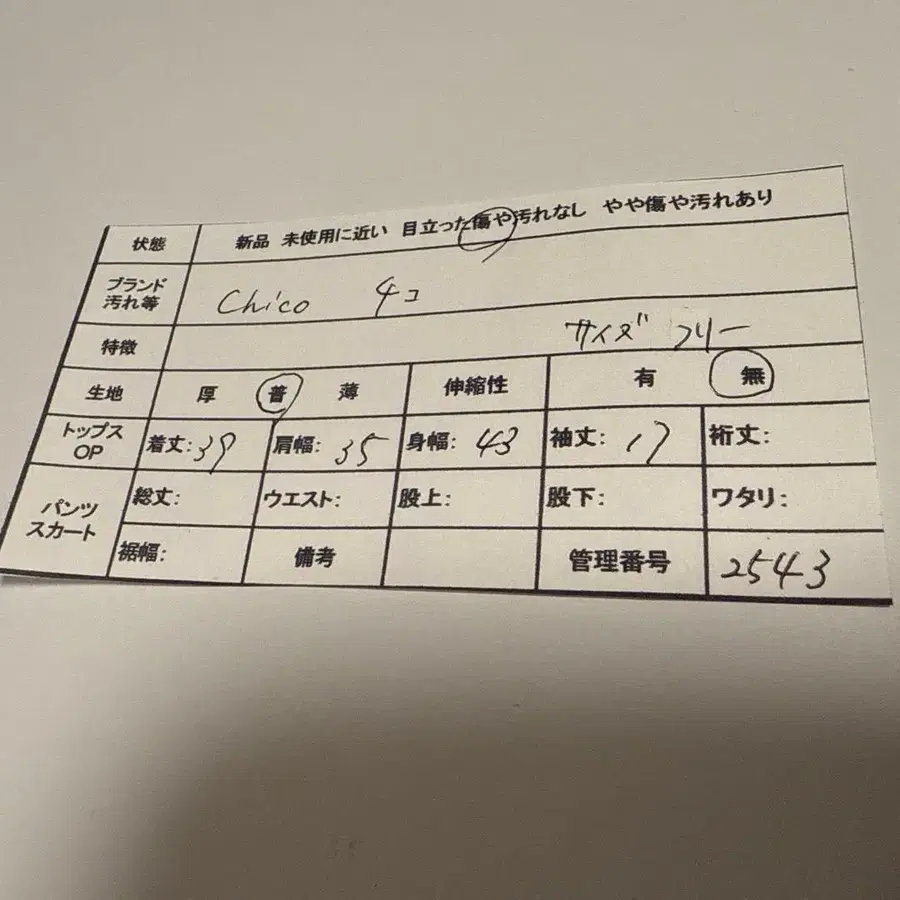 状態 新品 未使用に近い 目立った傷や汚れなし やや傷や汚れあり
ブランド 汚れ等 Chico チコ
特徴 サイズ フリー
生地 厚 普 薄 伸縮性 有 無
トップス OP 着丈: 39 肩幅: 35 身幅: 43 袖丈: 17 裄丈:
パンツ スカート 総丈: ウエスト: 股上: 股下: ワタリ:
裾幅: 備考 管理番号 2543